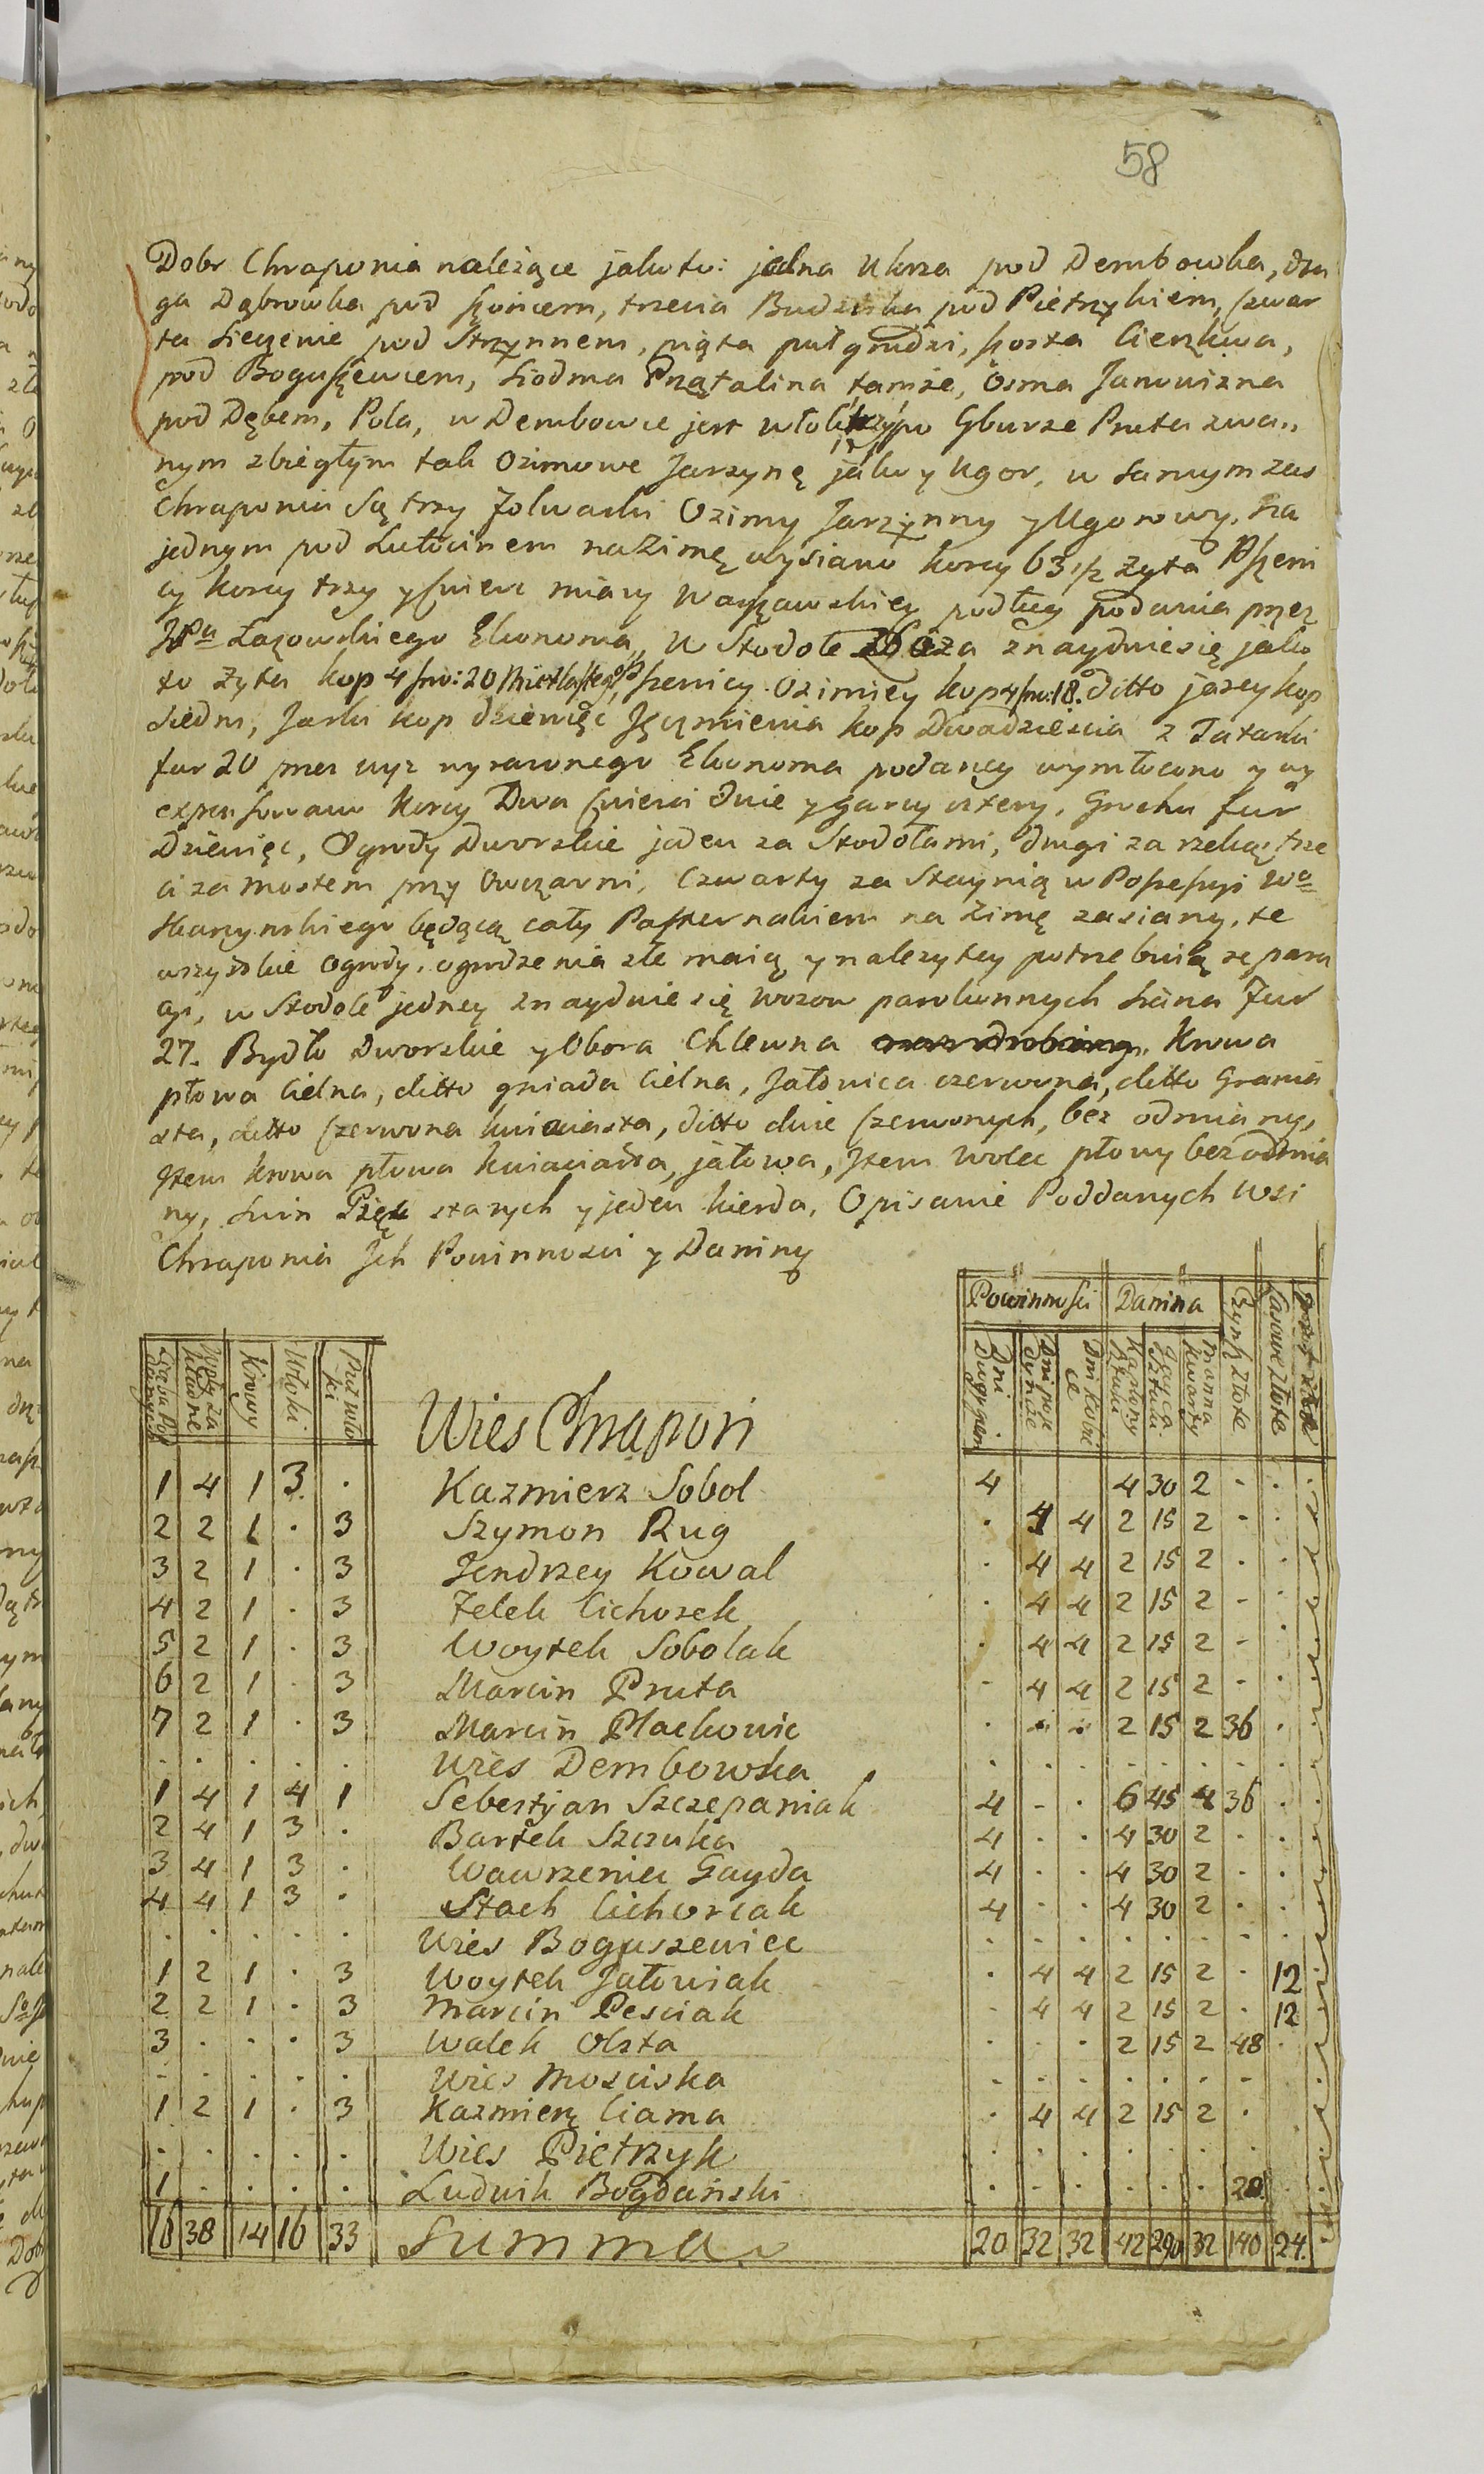 58
Dobr Chraponia należące jakoto: jedna Ukrza pod Dembowka, dru
ga Dąbrowka pod końcem, trzecia Budzinka pod Pietrzykiem, czwar
ta Sieczenie pod Strzynnem, piąta pułgrudzi, szosta Cierzkwa,
pod Boguszewcem, Siodma Prątalina tamże, Osma Janowizna
pod Dębem, Pola, w Dembowce jest włoki trzy po Gburze Pruta zwa„
nym zbiegłym tak Ozimowe Jarzynę jako y Ugor, w samym zas
Chraponiu Są trzy folwarki Ozimy Jarzynny y Ugorowy. na
jednym pod Lutocinem na Zimę wysiano korcy 63 1/2 Zyta Pszeni
cy korcy trzy y ćwierc miary Warszawskiey podług podania przez
JPa Łazowskiego Ekonoma, w Stodole Zboza znayduie się jako
to Zyta kop 4 sno: 20 Pszenicy Ozimiey kop 4 sno: 18. ditto jarey kop
siedm, Jarki kop dziewięc Jęczmienia kop Dwadziescia z Tatarki
fur 20 przez wyz wyrazonego Ekonoma podaney wymłocono y wy
expensowano korcy Dwa cwierci dwie y garcy cztery, Grochu fur
Dziewięc, Ogrody Dworskie jeden za Stodołami, drugi za rzeką, trze
ci za mostem przy Owczarni, Czwarty za Staynią w Possessyi Wo
Skarzynskiego będącą cały Pasternakiem na Zimę zasiany. te
wszystkie Ogrody, ogrodzenia złe maią y nalezytey potrzebuią repara
cyi, w Stodole jedney znayduie się wozow parokonnych siana fur
27. Bydło Dworskie y Obora Chlewna Krowa
płowa Cielna, ditto gniada Cielna, Jałowica czerwona, ditto Grania
sta, ditto Czerwona kwiaciasta, ditto dwie Czerwonych, bez odmiany,
Item krowa płowa kwiaciasta, jałowa, Item wolec płowy bez odmia
ny, Swin Pięc starych y jeden kierda, Opisanie Poddanych Wsi
Chraponia Ich Powinnosci y Daniny
Powinnosci Danina
Liczba Pod danych Woły za kładne Krowy Włoki Puł wło ki Dni Dni poje dynze Dni Kobie ce Kapłony Sztuki Jayca Sztuki Manna kwarty Czynsz Złote Lasowe Złote
Wies Chrapoń
1 4 1 3 . Kazmierz Sobol 4 4 30 2 - .
2 2 1 . 3 Szymon Rug . 4 4 2 15 2 - .
3 2 1 . 3 Jendrzey Kowal . 4 4 2 15 2 . .
4 2 1 . 3 Felek Cichoszek . 4 4 2 15 2 - .
5 2 1 . 3 Woytek Sobolak . 4 4 2 15 2 - .
6 2 1 . 3 Marcin Pruta - 4 4 2 15 2 - .
7 2 1 . 3 Marcin Mackowic . . . 2 15 2 36 .
. . . . . Wies Dembowka . . . . . . . .
1 4 1 4 1 Sebestyjan Szczepaniak 4 - . 6 45 4 36 .
2 4 1 3 . Bartek Szczuka 4 . . 4 30 2 . .
3 4 1 3 . Wawrzeniec Gayda 4 . . 4 30 2 . .
4 4 1 3 . Stach Cichorcak 4 . . 4 30 2 . .
. . . . . Wies Boguszewiec . . . . . . - .
1 2 1 . 3 Woytek Jałowiak . 4 4 2 15 2 . 12
2 2 1 . 3 Marcin Pesciak - 4 4 2 15 2 . 12
3 . . . 3 Walek Olszta . . . 2 15 2 48 .
. . . . . Wies Mosciska - . . . . . -
1 2 1 . 3 Kazmierz Ciama . 4 4 2 15 2 .
. . . . . Wies Pietrzyk . . . . . . .
1 . . . . Ludwik Bogdański . . . . . . 20
16 38 14 16 33 Summa 20 32 32 42 290 32 140 24.